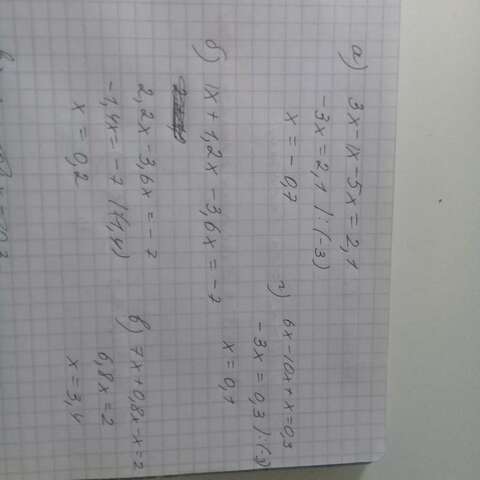 а) 3x-1x-5x=2,1
-3x=2,1 |:(-3)
x=-0,7
б) 1x+1,2x-3,6x=-7
2,2x-3,6x=-7
-1,4x=-7 |(-1,4)
x=0,2
в) 7x+0,8x-x=2
6,8x=2
x=3,4
г) 6x-10x+x=0,3
-3x=0,3 |:(-3)
x=0,1